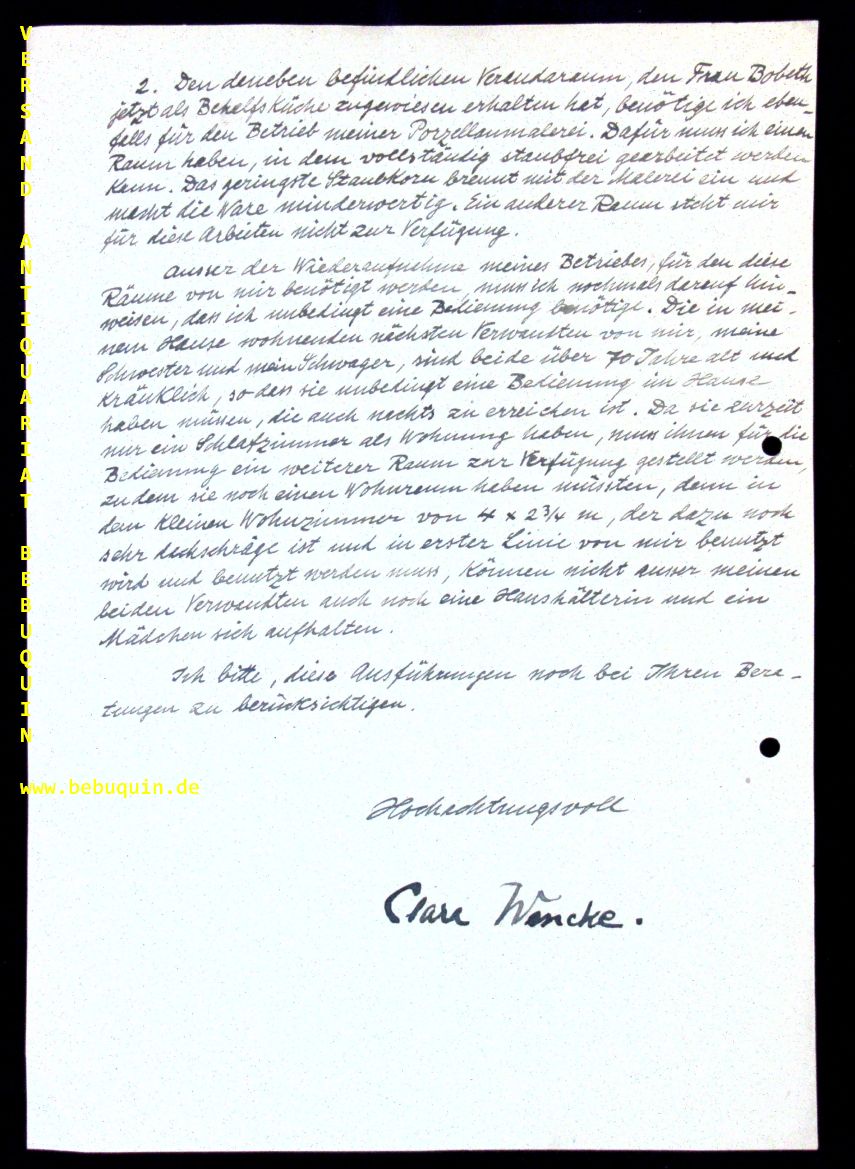 2. Den daneben befindlichen Verandaraum, den Frau Bobeth
jetzt als Behelfsküche zugewiesen erhalten hat, benötige ich eben-
falls für den Betrieb meiner Porzellanmalerei. Dafür muss ich einen
Raum haben, in dem vollständig staubfrei gearbeitet werden
kann. Das geringste Staubkorn brennt mit der Malerei ein und
macht die Ware minderwertig. Ein anderer Raum steht mir
für diese Arbeiten nicht zur Verfügung.
Ausser der Wiederaufnahme meines Betriebes, für den diese
Räume von mir benötigt werden, muss ich nochmals darauf hin-
weisen, dass ich unbedingt eine Bedienung benötige. Die in mei-
nem Hause wohnenden nächsten Verwandten von mir, meine
Schwester und mein Schwager, sind beide über 70 Jahre alt und
kränklich, so dass sie unbedingt eine Bedienung im Hause
haben müssen, die auch nachts zu erreichen ist. Da sie zurzeit
nur ein Schlafzimmer als Wohnung haben, muss ihnen für die
Bedienung ein weiterer Raum zur Verfügung gestellt werden,
zudem sie noch einen Wohnraum haben müssten, denn in
dem kleinen Wohnzimmer von 4 x 2¾ m, der dazu noch
sehr dachschräge ist und in erster Linie von mir benutzt
wird und benutzt werden muss, können nicht ausser meinen
beiden Verwandten auch noch eine Haushälterin und ein
Mädchen sich aufhalten.
Ich bitte, diese Ausführungen noch bei Ihren Bera-
tungen zu berücksichtigen.
Hochachtungsvoll
Clara Wencke.
VERSAND ANTIQUARIAT BEBUQUIN
www.bebuquin.de